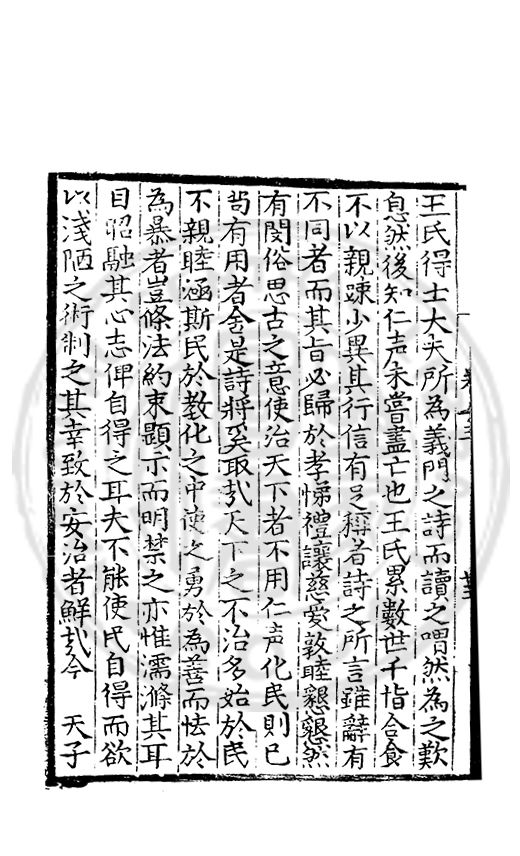 王氏得士大夫所為義門之詩而讀之喟然為之歎
息然後知仁声未嘗盡亡也王氏累數世千指合食
不以親踈少異其行信有足稱者詩之所言雖辭有
不同者而其旨必歸於孝悌禮讓慈愛敦睦懇懇然
有閔俗思古之意使治天下者不用仁声化民則已
茍有用者舍是詩將奚取㢤天下之不治多始於民
不親睦涵斯民於教化之中使之勇於為善而怯於
為暴者豈條法約束顯示而明禁之亦惟濡滌其耳
目昭融其心志俾自得之耳夫不能使民自得而欲
以淺陋之術制之其幸致於安治者鮮㢤今 天子